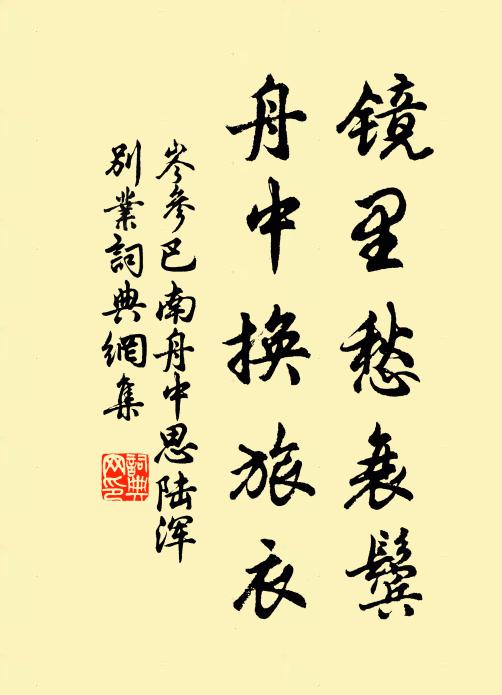 镜里愁衰鬓
舟中换旅衣
岑参巴南舟中思陆浑
别业詞典網集
詞典
网印